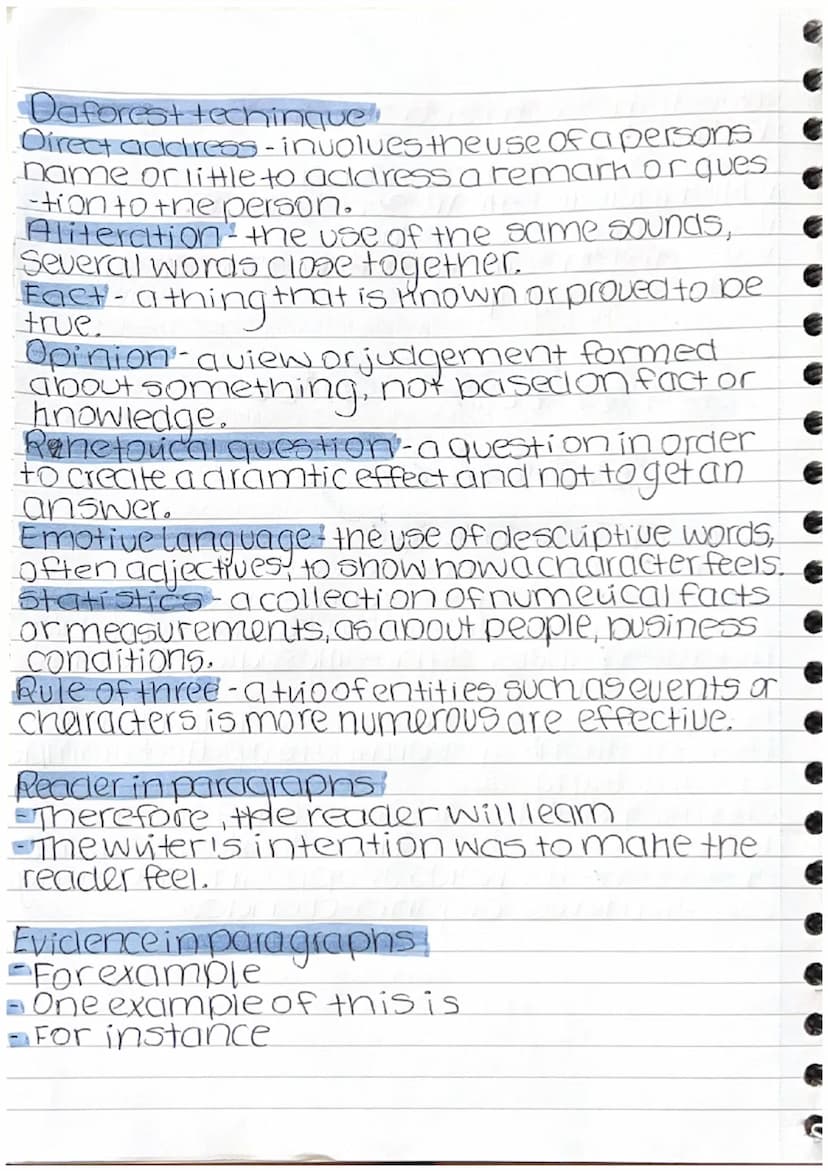 Daforest techinque
Direct address - involves the use of a persons
name or little to address a remark or ques
-tion to the person.
Aliteration - the use of the same sounds,
several words close together.
Fact - a thing that is known or proved to be
true.
Opinion - a view or judgement formed
about something, not based on fact or
knowledge.
Rehetorical question - a question in order
to create a dramtic effect and not to get an
answer.
Emotive language - the use of descriptive words,
often adjectives, to show how a character feels.
Statistics - a collection of numerical facts
or measurements, as about people, business
conditions.
Rule of three - a trio of entities such as events or
characters is more numerous are effective.
Reader in paragraphs
- Therefore, the reader will learn
- The writer's intention was to make the
reader feel.
Evidence in paragraphs
- For example
- One example of this is
- For instance